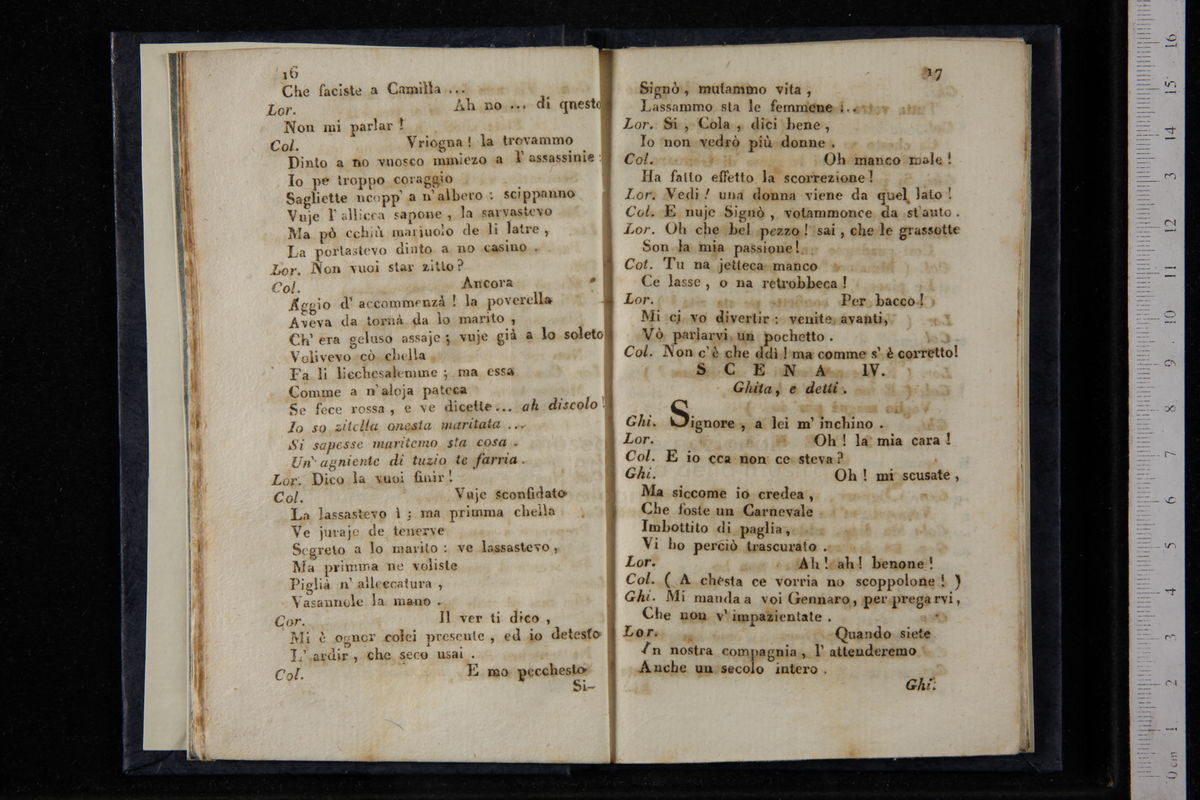 16
Che faciste a Camilla ...
Lor. Ah no ... di qnesto
Non mi parlar !
Col. Vriogna ! la trovammo
Dinto a no vuosco mmiezo a l' assassinie :
Io pe troppo coraggio
Sagliette ncopp' a n' albero : scippanno
Vuje l' allicca sapone , la sarvastevo
Ma pò cchiù mariuolo de li latre ,
La portastevo dinto a no casino .
Lor. Non vuoi star zitto ?
Col. Ancora
Aggio d' accommenzà ! la poverella
Aveva da tornà da lo marito ,
Ch' era geluso assaje ; vuje già a lo soleto
Volivevo cò chella
Fa li licchesalemme ; ma essa
Comme a n' aloja pateca
Se fece rossa , e ve dicette ... ah discolo !
Io so zitella onesta maritata ...
Si sapesse maritemo sta cosa .
Un' agniente di tuzio te farria .
Lor. Dico la vuoi finir !
Col. Vuje sconfidato
La lassastevo ì ; ma primma chella
Ve juraje de tenerve
Segreto a lo marito : ve lassastevo ,
Ma primma ne voliste
Piglià n' alleccatura ,
Vasannole la mano .
Cor. Il ver ti dico ,
Mi è ognor colei presente , ed io detesto
L' ardir , che seco usai .
Col. E mo pecchesto
Si-
17
Signò , mutammo vita ,
Lassammo sta le femmene ...
Lor. Si , Cola , dici bene ,
Io non vedrò più donne .
Col. Oh manco male !
Ha fatto effetto la scorrezione !
Lor. Vedi ! una donna viene da quel lato !
Col. E nuje Signò , votammonce da st'auto .
Lor. Oh che bel pezzo ! sai , che le grassotte
Son la mia passione !
Cot. Tu na jetteca manco
Ce lasse , o na retrobbeca !
Lor. Per bacco !
Mi ci vo divertir : venite avanti,
Vò parlarvi un pochetto .
Col. Non c' è che ddi ! ma comme s' è corretto!
SCENA IV.
Ghita, e detti .
Ghi. Signore , a lei m' inchino .
Lor. Oh ! la mia cara !
Col. E io cca non ce steva ?
Ghi. Oh ! mi scusate ,
Ma siccome io credea ,
Che foste un Carnevale
Imbottito di paglia ,
Vi ho perciò trascurato .
Lor. Ah ! ah ! benone !
Col. ( A chesta ce vorria no scoppolone ! )
Ghi. Mi manda a voi Gennaro, per pregarvi,
Che non v' impazientate .
Lor. Quando siete
In nostra compagnia , l' attenderemo
Anche un secolo intero .
Ghi.